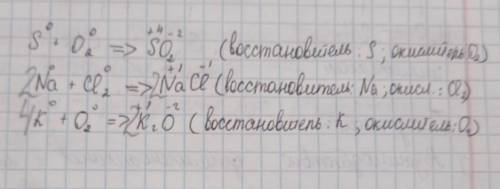 S⁰ + O₂⁰ => S⁺⁴O₂⁻² (восстановитель: S; окислитель O₂)
2Na⁰ + Cl₂⁰ => 2Na⁺¹Cl⁻¹ (восстановитель: Na; окисл.: Cl₂)
4K⁰ + O₂⁰ => 2K₂⁺¹O⁻² (восстановитель: K, окислитель: O₂)